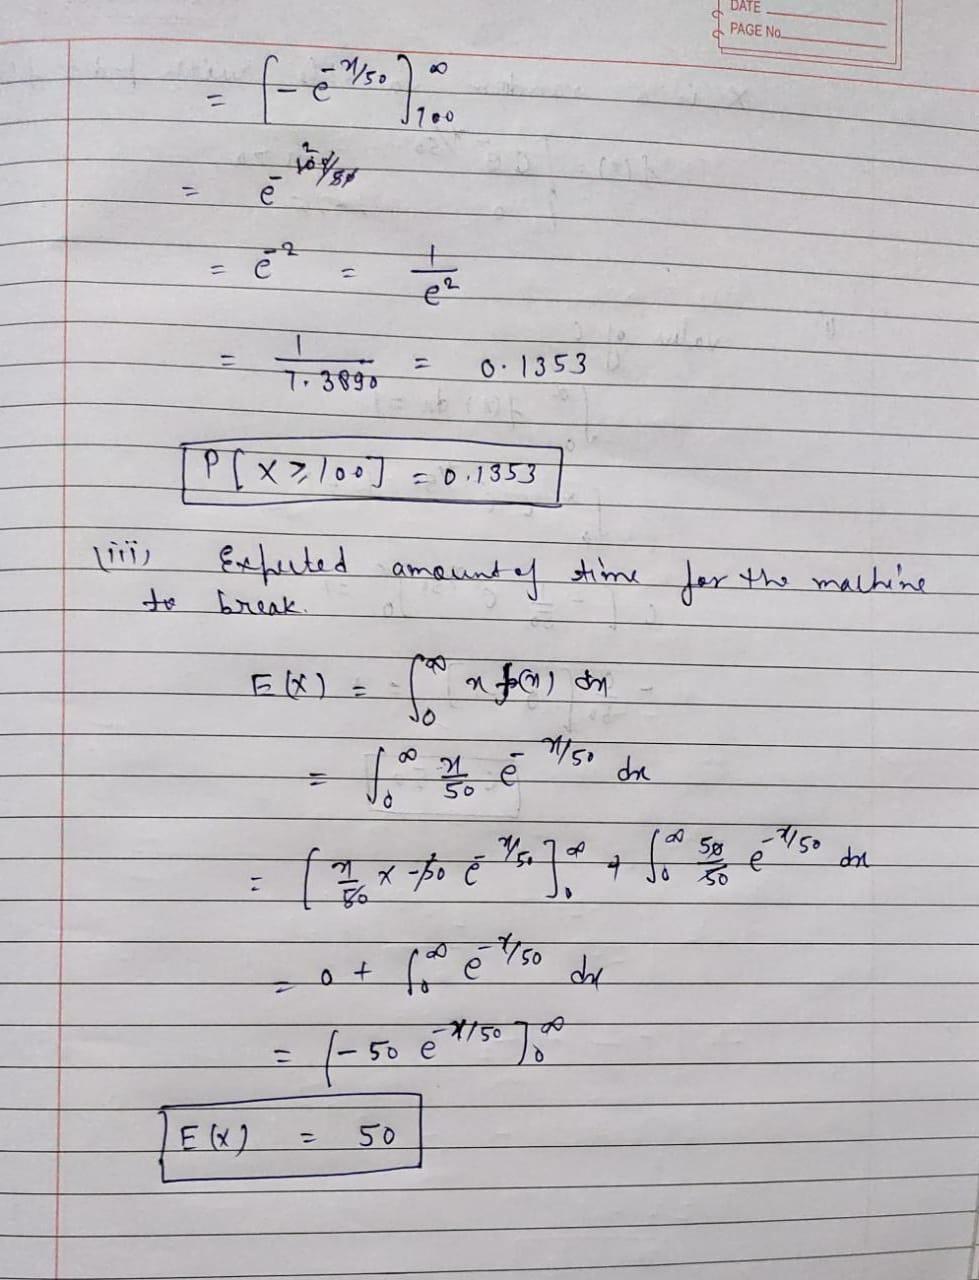 DATE
PAGE No.
= [-e^{-x/50}]_{100}^{∞}
= e^{-100/50} 2
= e^{-2} = 1/e^2
= 1/7.3890 = 0.1353
P[X ≥ 100] = 0.1353
(iii) Expected amount of time for the machine
to break.
E(X) = ∫_0^∞ x f(x) dx
= ∫_0^∞ x/50 e^{-x/50} dx
= [x/50 × -50 e^{-x/50}]_0^∞ + ∫_0^∞ 50/50 e^{-x/50} dx
= 0 + ∫_0^∞ e^{-x/50} dx
= [-50 e^{-x/50}]_0^∞
E(X) = 50